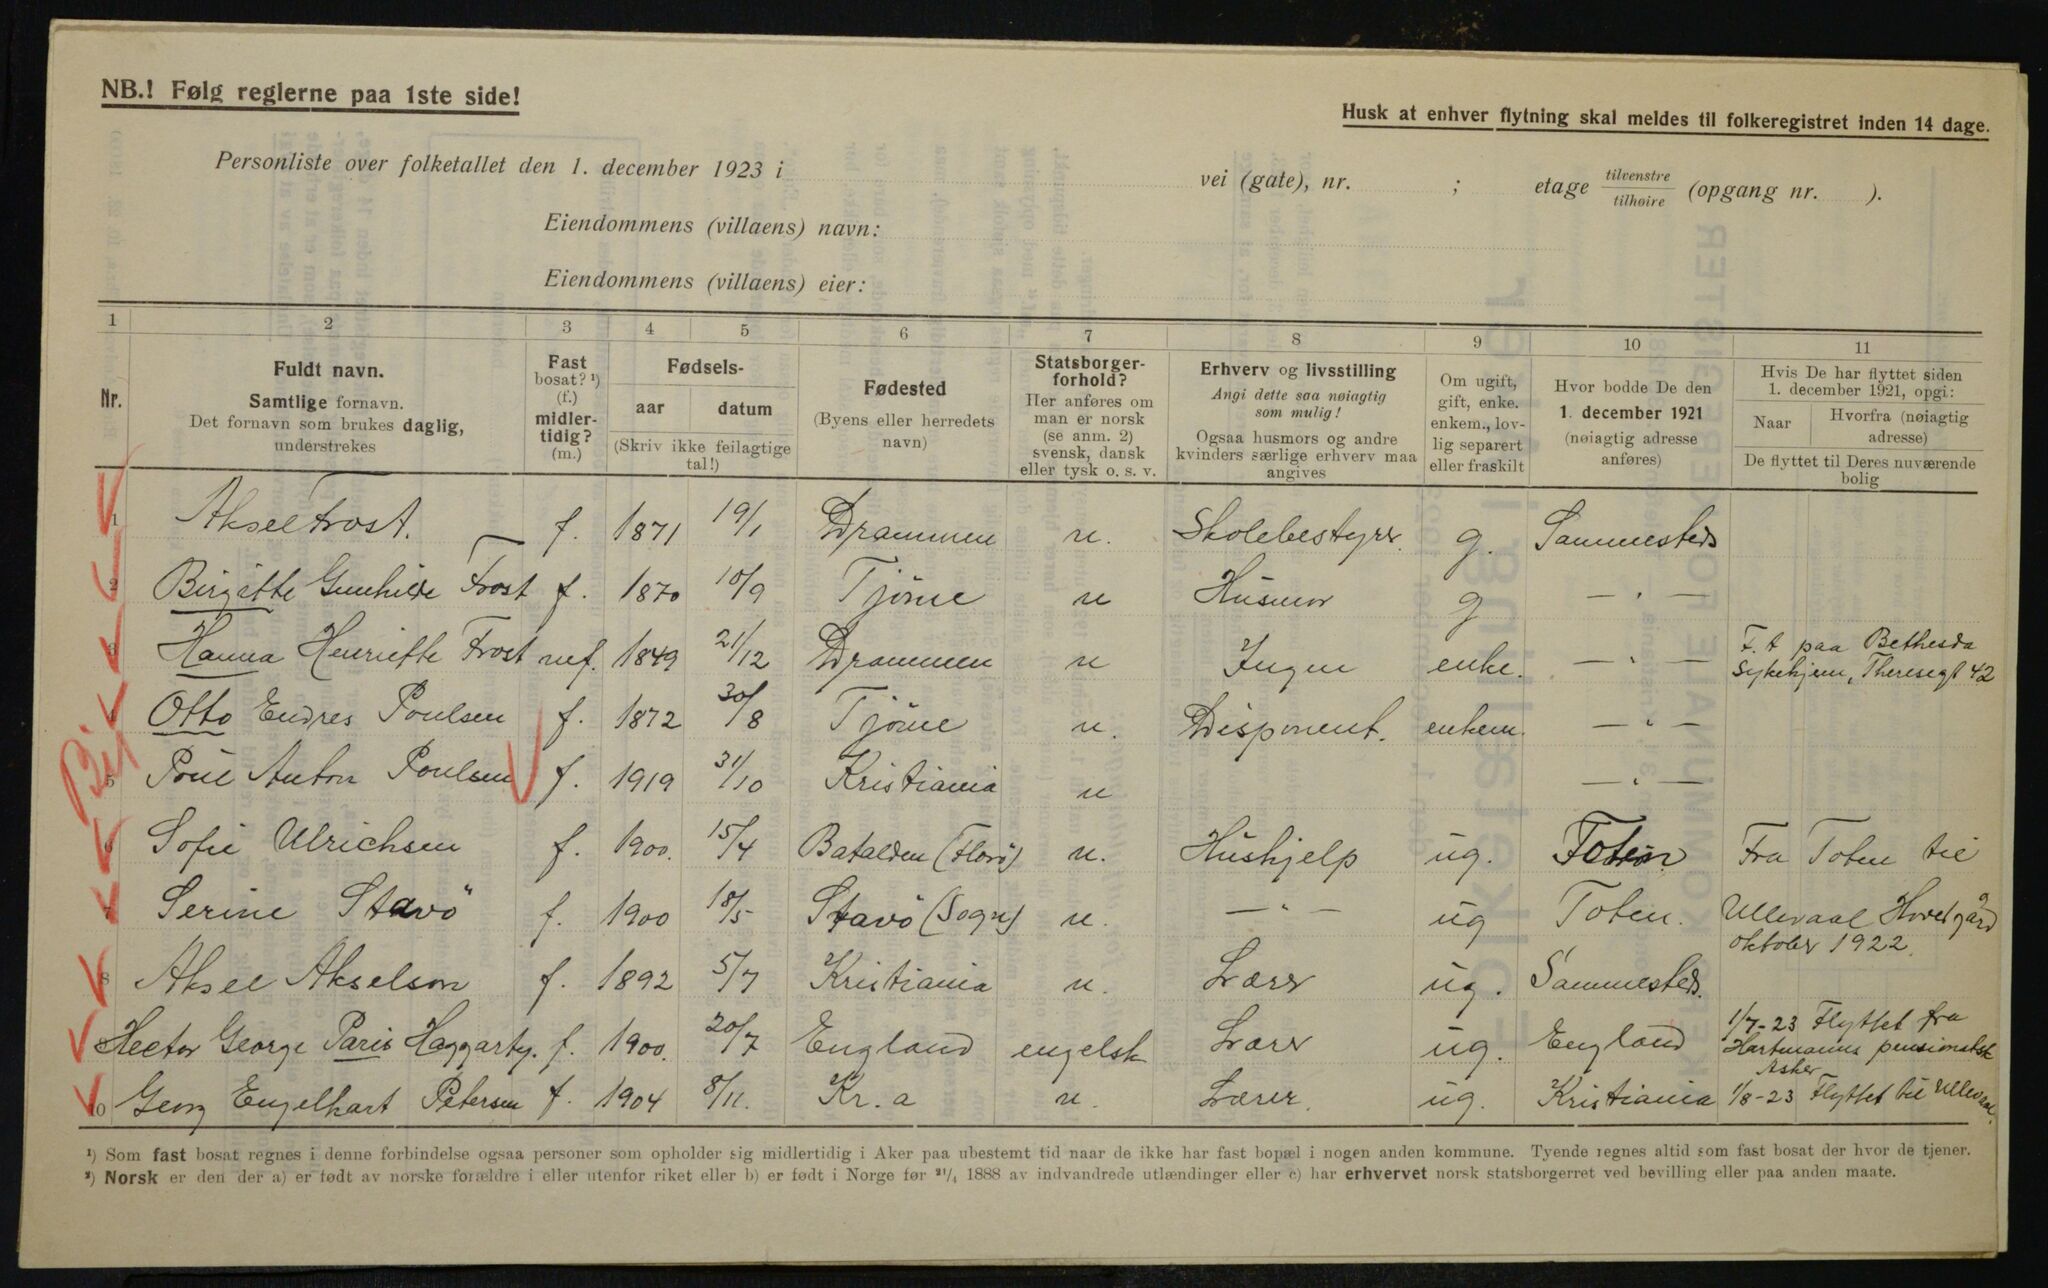 NB.! Følg reglerne paa 1ste side!
Husk at enhver flytning skal meldes til folkeregistret inden 14 dage.
Personliste over folketallet den 1. december 1923 i vei (gate), nr. ; etage tilvenstre tilhøire (opgang nr. ).
Eiendommens (villaens) navn:
Eiendommens (villaens) eier:
1 2 3 4 5 6 7 8 9 10 11
Nr.
Fuldt navn.
Samtlige fornavn.
Det fornavn som brukes daglig,
understrekes
Fast
bosat? ¹)
(f.)
midler-
tidig?
(m.)
Fødsels-
aar datum
(Skriv ikke feilagtige
tal!)
Fødested
(Byens eller herredets
navn)
Statsborger-
forhold?
Her anføres om
man er norsk
(se anm. 2)
svensk, dansk
eller tysk o. s. v.
Erhverv og livsstilling
Angi dette saa nøiagtig
som mulig!
Ogsaa husmors og andre
kvinders særlige erhverv maa
angives
Om ugift,
gift, enke.
enkem., lov-
lig separert
eller fraskilt
Hvor bodde De den
1. december 1921
(nøiagtig adresse
anføres)
Hvis De har flyttet siden
1. december 1921, opgi:
Naar Hvorfra (nøiagtig
adresse)
De flyttet til Deres nuværende
bolig
1 Aksel Frost. f. 1871 19/1 Drammen n. Skolebestyrer. g. Sammesteds
2 Birgitte Gunhilde Frost f. 1870 10/9 Tjöme n Husmor g — " —
3 Hanna Henriette Frost mf. 1849 21/12 Drammen n Ingen enke. — " — F. t paa Bethesda
Sykehjem, Theresegt 42
4 Otto Endres Poulsen f. 1872 30/8 Tjöme n. Disponent. enkem. — " —
5 Poul Anton Poulsen f. 1919 31/10 Kristiania n — " —
6 Sofie Ulrichsen f. 1900. 15/4 Batalden (Florö) n. Hushjelp ug. Toten Fra Toten til
7 Serine Stavö f. 1900 18/5 Stavö (Sogn) n. — " — ug Toten. Ullevaal Hovedgård
oktober 1922.
8 Aksel Akselson f. 1892 5/7 Kristiania n. Lærer ug. Sammesteds.
Hector George Paris Haggarty. f. 1900. 20/7 England engelsk Lærer ug. England 1/7-23 Flyttet fra
Hartmanns pensionatsk
Asker
10 Georg Engelhart Petersen f. 1904 8/11. Kr.a n. Lærer. ug. Kristiania 1/8-23 Flyttet til Ullevaal.
¹) Som fast bosat regnes i denne forbindelse ogsaa personer som opholder sig midlertidig i Aker paa ubestemt tid naar de ikke har fast bopæl i nogen anden kommune. Tyende regnes altid som fast bosat der hvor de tjener.
²) Norsk er den der a) er født av norske forældre i eller utenfor riket eller b) er født i Norge før ²¹/₄ 1888 av indvandrede utlændinger eller c) har erhvervet norsk statsborgerret ved bevilling eller paa anden maate.